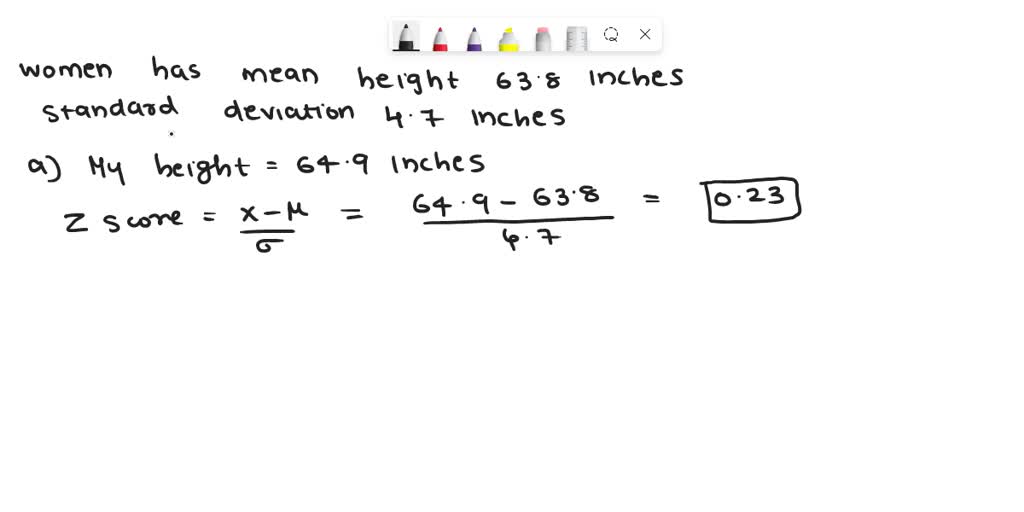 women has mean height 63.8 inches
standard deviation 4.7 inches
a) My height = 64.9 inches
Z score = x-μ/σ = 64.9 - 63.8/4.7 = 0.23